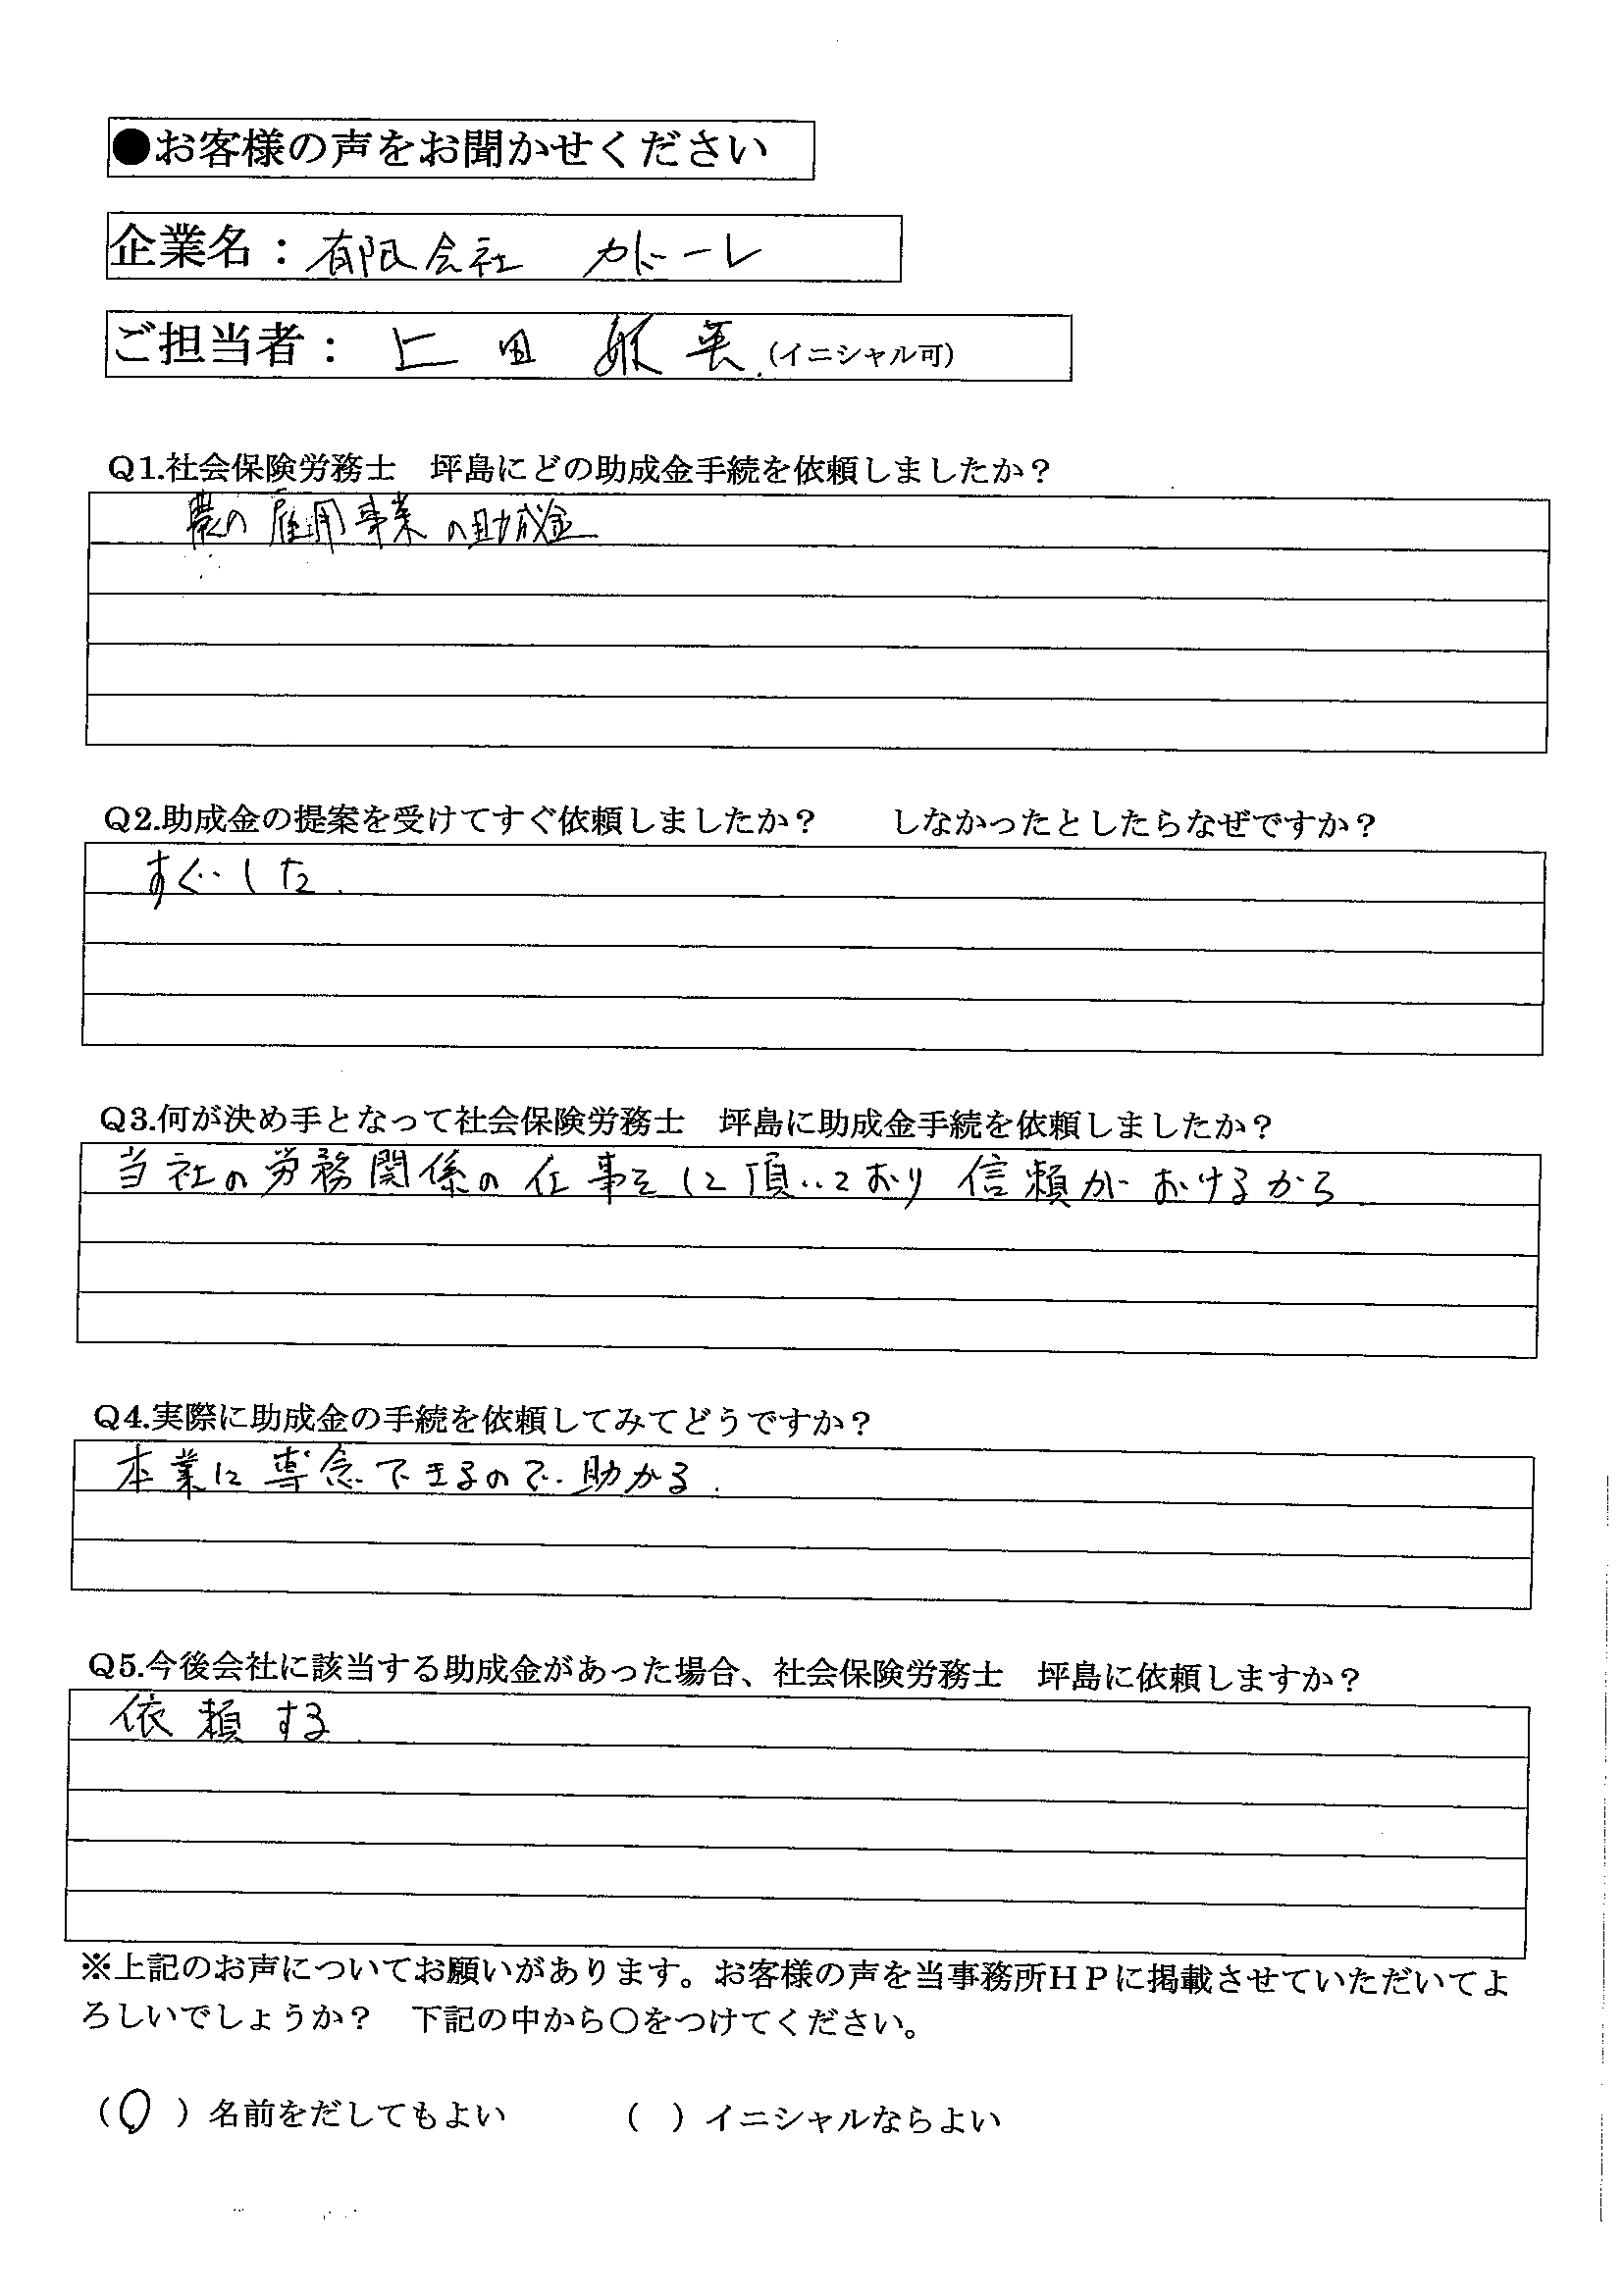 ●お客様の声をお聞かせください
企業名：有限会社 カドーレ
ご担当者：上田 (イニシャル可)
Q1.社会保険労務士 坪島にどの助成金手続を依頼しましたか？
農の雇用事業の助成金
Q2.助成金の提案を受けてすぐ依頼しましたか？ しなかったとしたらなぜですか？
すぐした.
Q3.何が決め手となって社会保険労務士 坪島に助成金手続を依頼しましたか？
当社の労務関係の仕事をして頂いており信頼がおけるから
Q4.実際に助成金の手続を依頼してみてどうですか？
本業に専念できるので助かる.
Q5.今後会社に該当する助成金があった場合、社会保険労務士 坪島に依頼しますか？
依頼する
※上記のお声についてお願いがあります。お客様の声を当事務所ＨＰに掲載させていただいてよ
ろしいでしょうか？ 下記の中から〇をつけてください。
（〇）名前をだしてもよい （ ）イニシャルならよい